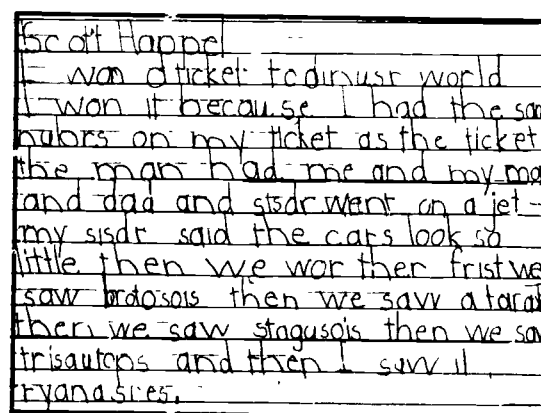 Scott Happel
I won a ticket to dinusr world
I won it because I had the sa
nubrs on my ticket as the ticket
the man had me and my mo
and dad and sisdr went on a jet
my sisdr said the cars look so
little then we wor ther frist we
saw brotosois then we saw a tarat
then we saw stagusois then we saw
trisautops and then I saw